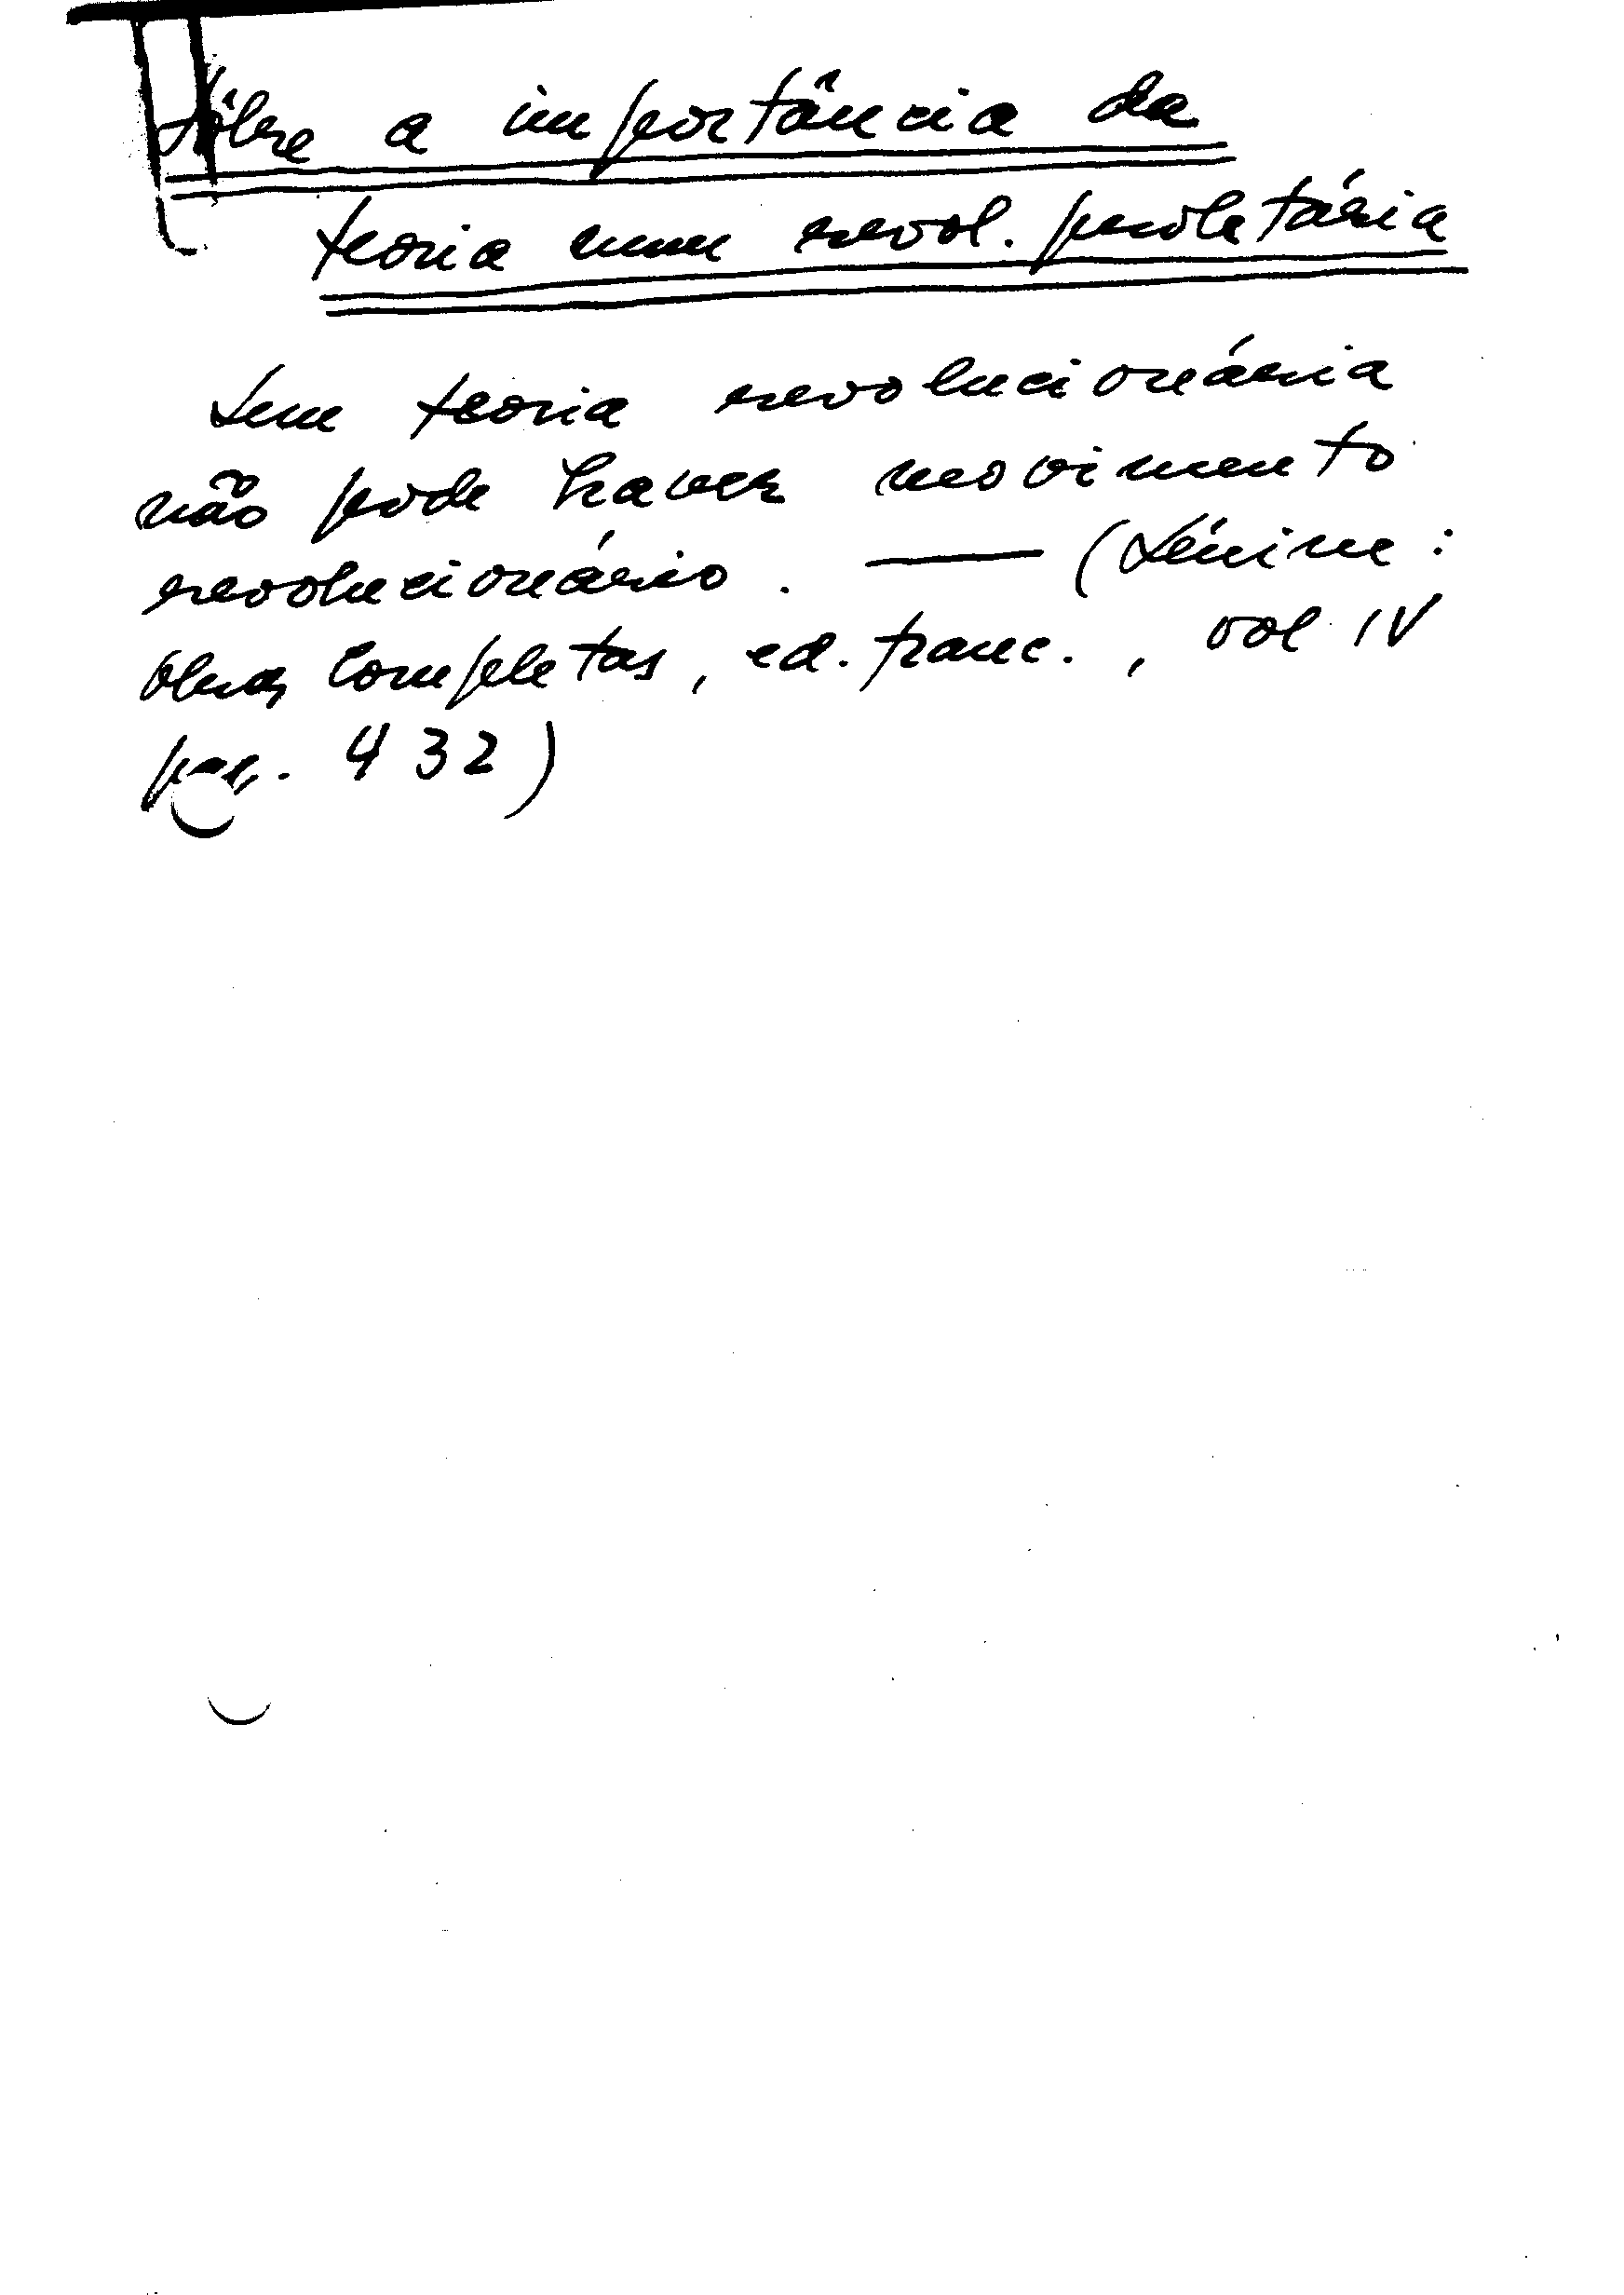 Sôbre a importância da
teoria numa revol. proletária
Sem teoria revolucionária
não pode haver movimento
revolucionário. — (Lénine:
Obras Completas, ed. franc., vol IV
pag. 432)